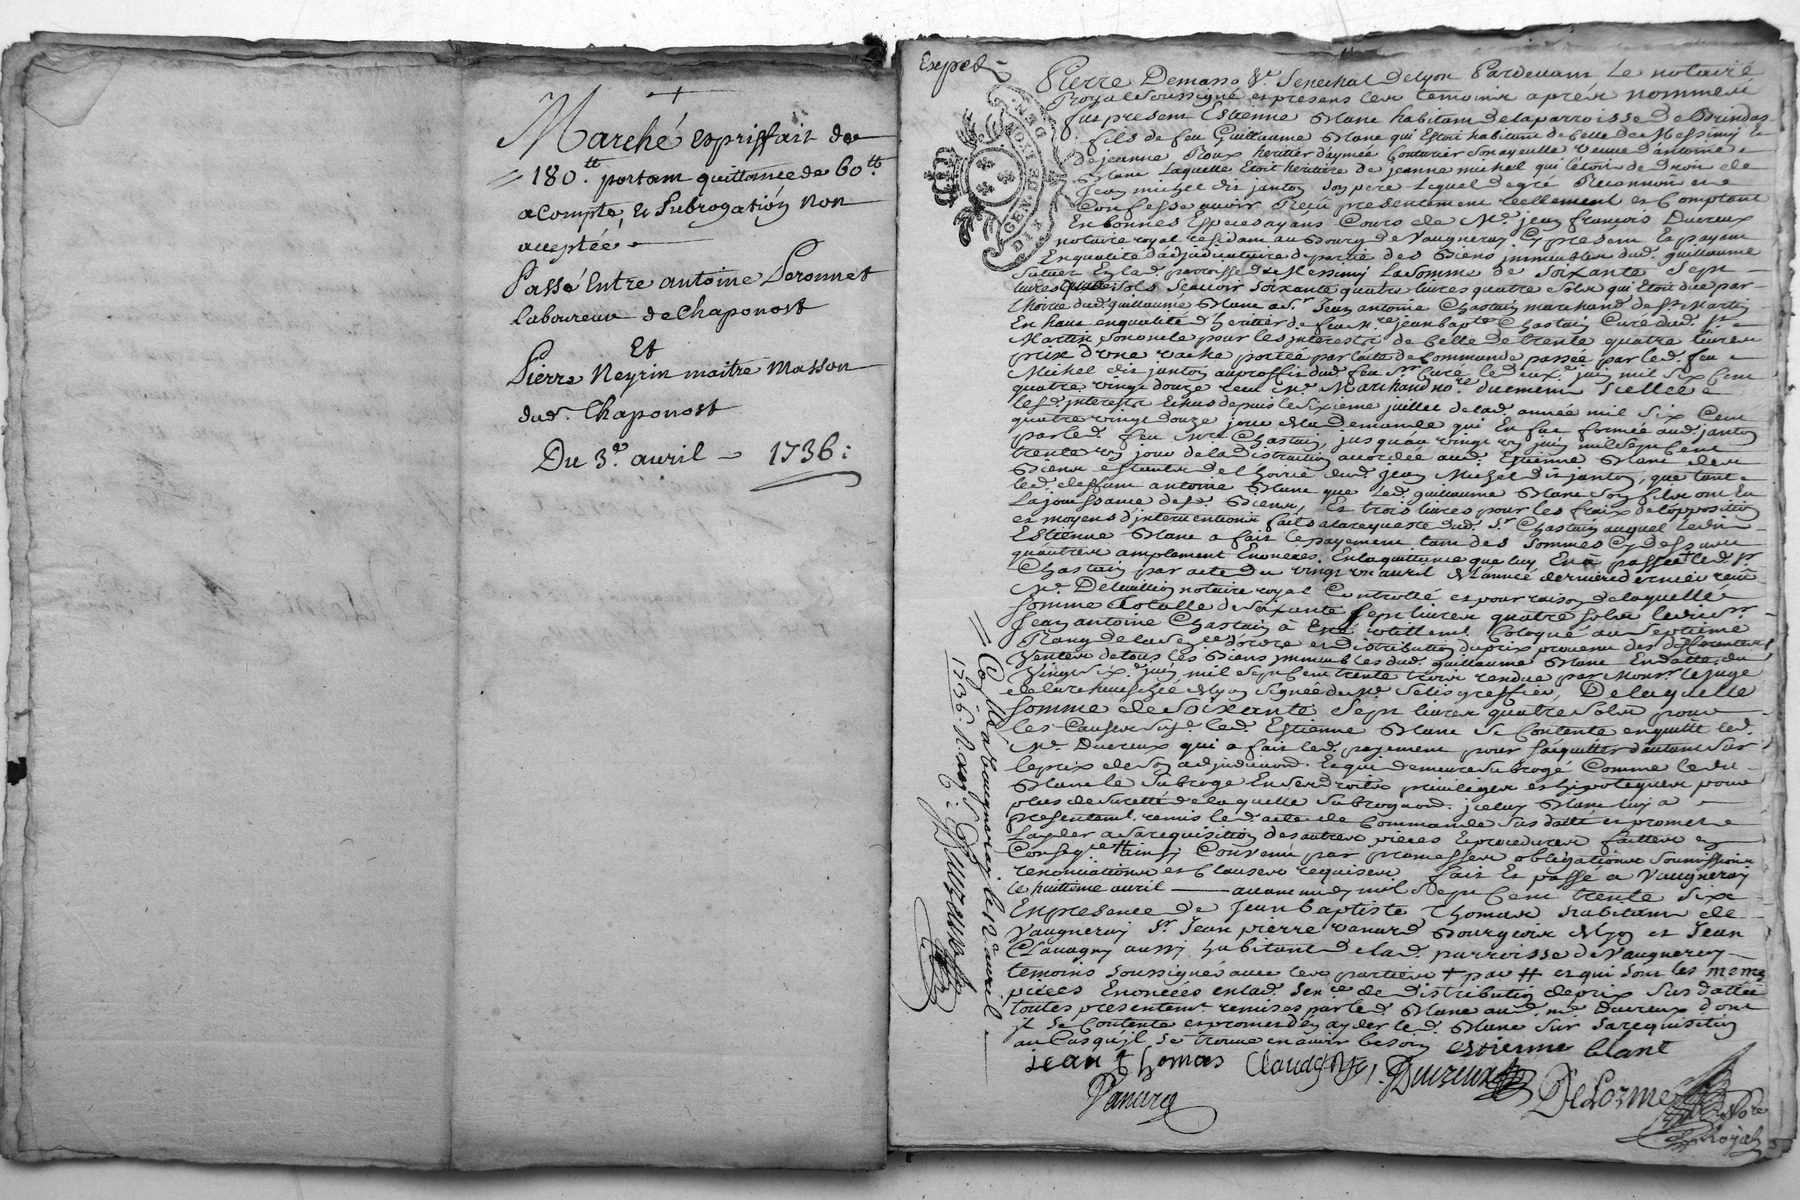 Marché et prisfait de
180.tt portant quittance de 60.tt
acompte, et subrogation non
acceptée
Passé Entre antoine Peronnet
laboureur de Chaponost
Et
Pierre Neyrin maitre Masson
dud. Chaponost
Du 3.e avril 1736:
Exped.
GEN. DE LION
Pierre Demasso Sr. Senechal de lyon Pardevant Le notaire
Royal soussigné et presens les temoins aprés nommés
fut present Estienne Blanc habitant de la parroisse de Brindas
fils de feu Guillaume Blanc qui Estoit habitant de celle de Messimy
de jeanne Roux heritier d'aymée Couturier son ayeulle veuve d'antoine
Blanc Laquelle Etoit heritiere de jeanne michel qui l'etoit de droit de
Jean michel dit janton son pere Lequel de gré Reconnoit et
Confesse avoir Reçu presentement réellement et Comptant
En bonnes Especes ayans Cours de Me. jean françois Ducreux
notaire royal residant au Bourg de Vaugneray Cy present Et payant
En qualité d'adjudicataire de partie des Biens immeubles dud. guillaume
situés En lad. parroisse de Messimy La somme de soixante sept
livres quatre sols scavoir soixante quatre livres quatre sols qui Etoit due par
l'hoirie dud. guillaume Blanc a Sr. Jean antoine Chastain marchand de St. Martin
En haut en qualité d'heritier de feu Mre. jean bapte. Chastain Curé dud. St.
Martin sommée pour les interests de celle de trente quatre livres
prix d'une vache portée par l'acte de Commande passée par led. feu
Michel dit janton au proffit dud. feu Sr. Curé le deuxe. juin mil six Cent
quatre vingt douze reçu Me. Marchand nore. duement scellé
lesd. interests Echus depuis le sixieme juillet de lad. année mil six Cent
quatre vingt douze jour de la demande qui En fut formée aud. janton
par led. feu Mre. Chastain, jusqu'au vingt juin mil sept Cent
trente jour de la distraction accordée aud. Estienne Blanc des
Biens de l'hoirie dud. Jean Michel dit janton, que tant
led. deffunt antoine Blanc que Led. guillaume Blanc son fils ont Eu
La jouissance desd. Biens, Et trois livres pour les fraix de l'opposition
et moyens d'interventions faits a la requeste dud. Sr. Chastain auquel led.
Estienne Blanc a fait le payement tant des sommes Cy dessus
qu'autres amplement Enoncées En la quittance que luy En a passée led. Sr.
Chastain par acte du vingt avril de l'année derniere reçu
Me. notaire royal Controllé et pour raison de laquelle
somme totalle de soixante sept livres quatre sols led. Sr.
Jean antoine Chastain a Eté utillement Coloqué au septieme
Rang de la Sence. d'ordre et distribution du prix provenu des
Ventes de tous les Biens immeubles dud. guillaume Blanc En datte du
Vingt six.e juin mil sept Cent trente trois rendue par Monsr. le juge
signée de Me. greffier, De laquelle
somme de soixante sept livres quatre sols pour
les Causes susd. led. Estienne Blanc se Contente en quitte led.
Me. Ducreux qui a fait led. payement pour s'aquitter d'autant sur
le prix de son adjudicaon. Et qui demeure subrogé Comme led.
Blanc le subroge En ses droits privileges et hipoteques pour
plus de sureté de laquelle subrogaon. iceluy Blanc luy a
presentemt. remis led. acte de Commande sus datté et promet
l'ayder a sa requisition des autres pieces Et procedures faittes en
Conseqce. # ainsy Convenu par promesses obligations soumissions
renonciations et Clauses requises fait Et passé a Vaugneray
le huitieme avril avant midy mil sept Cent trente six
En presence de Jean Baptiste Thomas habitant de
Vaugneray Sr. Jean pierre Vanard Bourgeois de lyon et Jean
Clavagny aussy habitant de lad. parroisse de Vaugneray
temoins soussignés avec les parties # par # et qui sont les memes
pieces Enoncées en lad. Sence. de distribution de prix sus dattée
toutes presentemt. remises par led. Blanc aud. Me. Ducreux dont
il se Contente et promet d'en ayder led. Blanc sur sa requisition
au Cas qu'il se trouve en avoir besoin estienne blanc
jean thomas Ducreux DeLorme
Vanard Nore
Royal
Collé a Vaugneray le 12.e avril
1736. R.